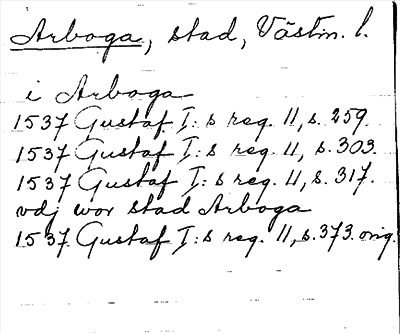 Arboga, stad, Västm. l.
i Arboga
1537 Gustaf I:s reg. 11, s. 259.
1537 Gustaf I:s reg. 11, s. 303.
1537 Gustaf I:s reg. 11, s. 317.
vdj wor stad Arboga
1537 Gustaf I:s reg. 11, s. 373. orig.